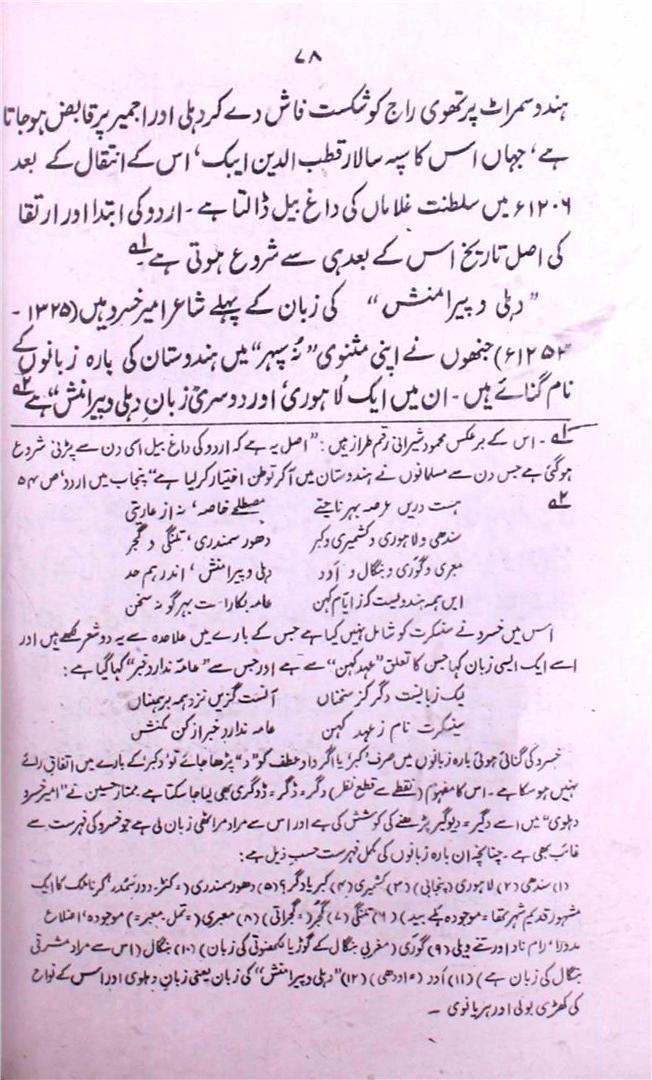 ۷۸
ہندو سمراٹ پرتھوی راج کو شکست فاش دے کر دہلی اور اجمیر پر قابض ہو جاتا
ہے، جہاں اس کا سپہ سالار قطب الدین ایبک، اس کے انتقال کے بعد
۱۲۰۶ء میں سلطنت غلاماں کی داغ بیل ڈالتا ہے ۔ اردو کی ابتدا اور ارتقا
کی اصل تاریخ اس کے بعد ہی سے شروع ہوتی ہے ۱؎
”دہلی و پیرامنش“ کی زبان کے پہلے شاعر امیر خسرو ہیں (۱۳۲۵ -
۱۲۵۳ء) جنھوں نے اپنی مثنوی ”نُہ سپہر“ میں ہندوستان کی بارہ زبانوں کے
نام گنائے ہیں ۔ ان میں ایک لاہوری اور دوسری زبانِ دہلی و پیرامنش“ ہے ۲؎
۱؎ ۔ اس کے برعکس محمود شیرانی رقم طراز ہیں : ”اصل یہ ہے کہ اردو کی داغ بیل اسی دن سے پڑنی شروع
ہو گئی ہے جس دن سے مسلمانوں نے ہندوستان میں آ کر توطن اختیار کر لیا ہے“ پنجاب میں اردو، ص ۵۴
۲؎ ہست دریں عرصہ بہر ناحیتے مصطلحے خاصہ، نہ از عاریتی
سندھی و لاہوری و کشمیری و کبر دھور سمندری، تلنگی و گجر
معبری و گوری و بنگال و اَوَد دہلی و پیرامنش، اندر ہمہ حد
ایں ہمہ ہندویست کز ایام کہن عامہ بکار است بہر گونہ سخن
اس میں خسرو نے سنسکرت کو شامل نہیں کیا ہے جس کے بارے میں علاحدہ سے یہ دو شعر لکھے ہیں اور
اسے ایک ایسی زبان کہا جس کا تعلق ”عہد کہن“ سے ہے اور جس سے ”عامہ ندارد خبر“ کہا گیا ہے :
لیک زبانیست دگر کز سخناں آنست گزیں نزد ہمہ برہمناں
سنسکرت نام ز عہد کہن عامہ ندارد خبر از کن مکنش
خسرو کی گنائی ہوئی بارہ زبانوں میں صرف ’کبر‘ یا اگر داد عطف کو ”د“ پڑھا جائے تو ’دکبر‘ کے بارے میں اتفاق رائے
نہیں ہو سکا ہے ۔ اس کا مفہوم (نقطے سے قطع نظر) دگر = ڈگر = ڈوگری بھی لیا جا سکتا ہے ۔ ممتاز حسین نے ”امیر خسرو
دہلوی“ میں اسے دگیر = دیوگیر پڑھنے کی کوشش کی ہے اور اس سے مراد مراٹھی زبان لی ہے جو خسرو کی فہرست سے
غائب بھی ہے ۔ چنانچہ ان بارہ زبانوں کی مکمل فہرست حسب ذیل ہے :
(۱) سندھی (۲) لاہوری (پنجابی) (۳) کشمیری (۴) کبر یا دگر ؟ (۵) دھور سمندری (= کنڑ۔ دور سمندر، کرناٹک کا ایک
مشہور قدیم شہر تھا = موجودہ ہلے بید) (۶) تلنگی (۷) گجر (= گجراتی) (۸) معبری (= تمل۔ معبر = موجودہ، اضلاع
مدورا، رام ناد اور تنے ویلی (۹) گوری (مغربی بنگال کے گوڑ یا لکھنوتی کی زبان) (۱۰) بنگال (اس سے مراد مشرقی
بنگال کی زبان ہے) (۱۱) اَوَد (= اودھی) (۱۲) ”دہلی و پیرامنش“ کی زبان یعنی زبانِ دہلوی اور اس کے نواح
کی کھڑی بولی اور ہریانوی ۔